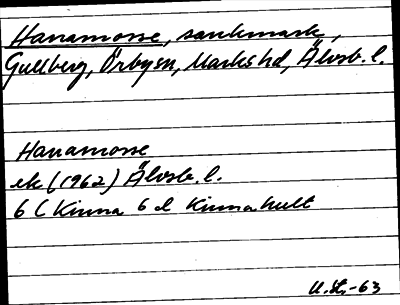 Hanamosse, sankmark,
Gullberg, Örbysn, Markshd, Älvsb. l.
Hanamosse
ek (1962) Älvsb. l.
6 C Kinna 6 d Kinnahult
U.St.-63